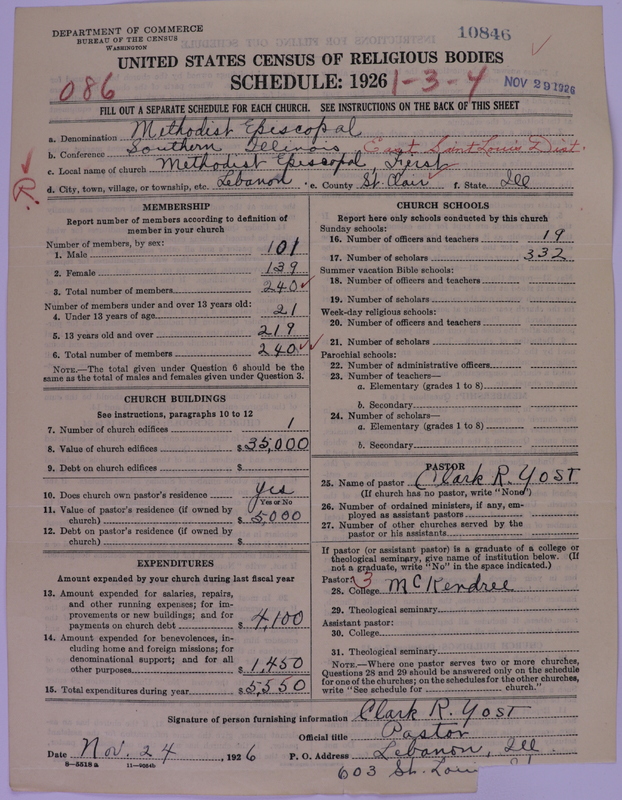 DEPARTMENT OF COMMERCE
BUREAU OF THE CENSUS
WASHINGTON
10846
UNITED STATES CENSUS OF RELIGIOUS BODIES
SCHEDULE: 1926
086
1-3-4
NOV 29 1926
FILL OUT A SEPARATE SCHEDULE FOR EACH CHURCH. SEE INSTRUCTIONS ON THE BACK OF THIS SHEET
a. Denomination Methodist Episcopal
b. Conference Southern Illinois East Saint Louis Dist.
c. Local name of church Methodist Episcopal, First
d. City, town, village, or township, etc. Lebanon e. County St. Clair f. State Ill
R
MEMBERSHIP
Report number of members according to definition of member in your church
Number of members, by sex:
1. Male 101
2. Female 139
3. Total number of members 240
Number of members under and over 13 years old:
4. Under 13 years of age 21
5. 13 years old and over 219
6. Total number of members 240
NOTE.—The total given under Question 6 should be the same as the total of males and females given under Question 3.
CHURCH BUILDINGS
See instructions, paragraphs 10 to 12
7. Number of church edifices 1
8. Value of church edifices $35,000
9. Debt on church edifices $
10. Does church own pastor's residence yes
Yes or No
11. Value of pastor's residence (if owned by church) $5,000
12. Debt on pastor's residence (if owned by church) $
EXPENDITURES
Amount expended by your church during last fiscal year
13. Amount expended for salaries, repairs, and other running expenses; for improvements or new buildings; and for payments on church debt $4,100
14. Amount expended for benevolences, including home and foreign missions; for denominational support; and for all other purposes $1,450
15. Total expenditures during year $5,550
CHURCH SCHOOLS
Report here only schools conducted by this church
Sunday schools:
16. Number of officers and teachers 19
17. Number of scholars 332
Summer vacation Bible schools:
18. Number of officers and teachers
19. Number of scholars
Week-day religious schools:
20. Number of officers and teachers
21. Number of scholars
Parochial schools:
22. Number of administrative officers
23. Number of teachers—
a. Elementary (grades 1 to 8)
b. Secondary
24. Number of scholars—
a. Elementary (grades 1 to 8)
b. Secondary
PASTOR
25. Name of pastor Clark R. Yost
(If church has no pastor, write "None")
26. Number of ordained ministers, if any, employed as assistant pastors
27. Number of other churches served by the pastor or his assistants
If pastor (or assistant pastor) is a graduate of a college or theological seminary, give name of institution below. (If not a graduate, write "No" in the space indicated.)
Pastor: 3
28. College McKendree
29. Theological seminary
Assistant pastor:
30. College
31. Theological seminary
NOTE.—Where one pastor serves two or more churches, Questions 28 and 29 should be answered only on the schedule for one of the churches; on the schedules for the other churches, write "See schedule for church."
Signature of person furnishing information Clark R. Yost
Official title Pastor
Date Nov. 24, 1926 P. O. Address Lebanon, Ill.
8—5518a 11—9554b
603 St. Lou